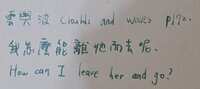 雲與波 Clouds and waves P172.
我怎麼能離她而去呢.
How can I leave her and go?